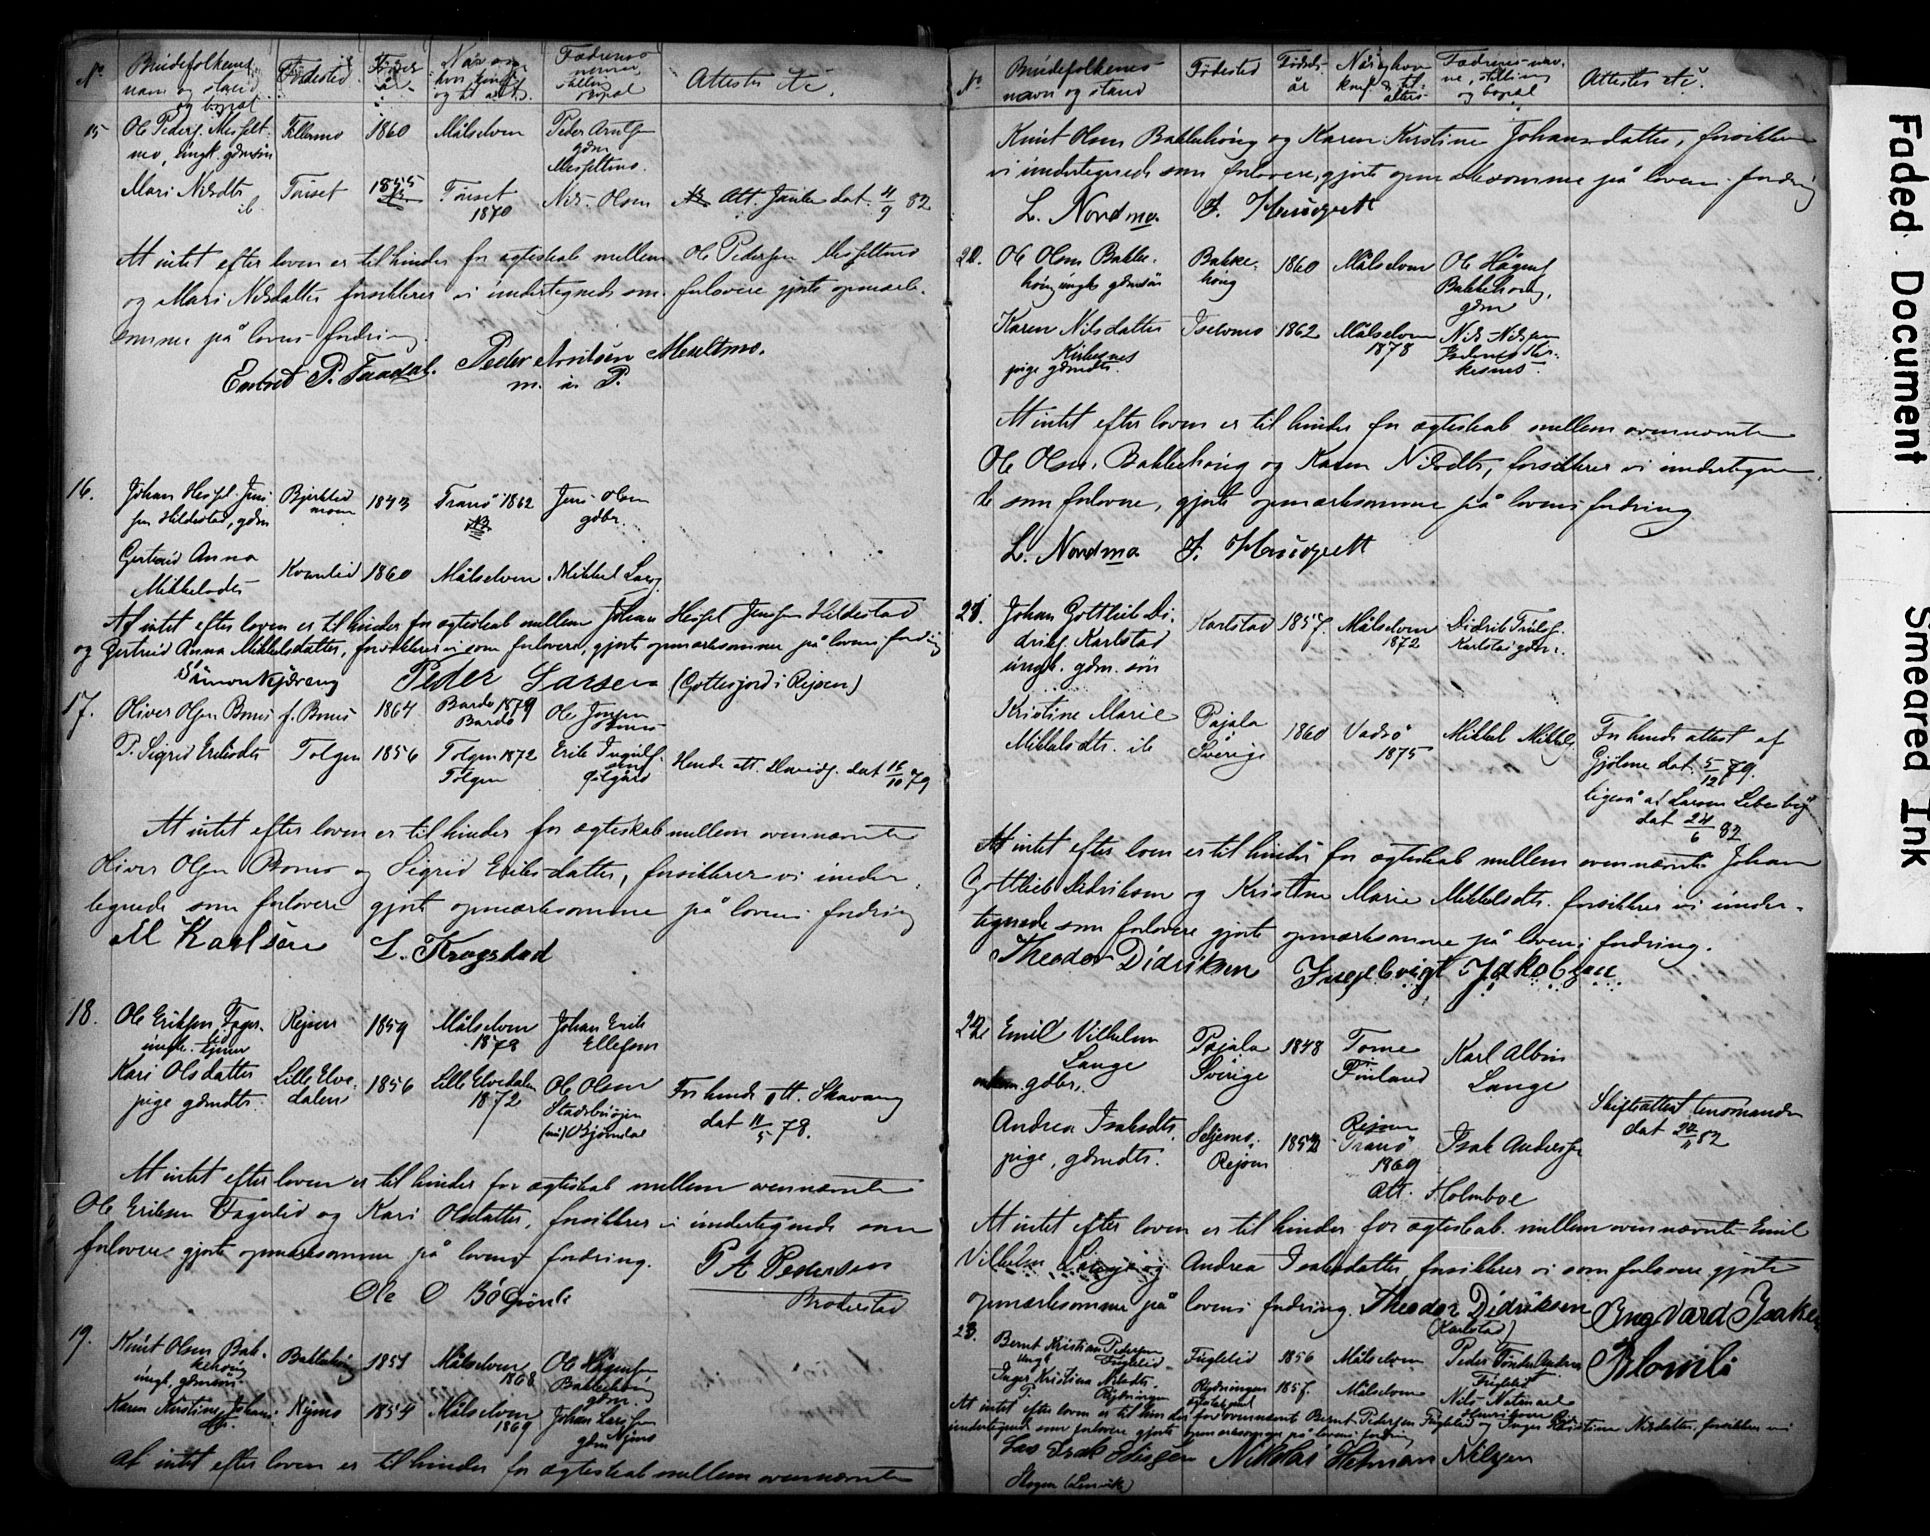 No
Brudefolkenes
navn og stand
og bopæl
Fødested
Fødsels
år
Når og
hvor konf.
og til alt.
Fædrenes
navne,
stilling
bopæl
Attester etc.
15
Ole Peders. Moseslt
mo, ungk. gdmsön
1860
Målselven
Peder Arntsen
gdm
Mari Nilsdtr
ib.
Tönset
1855
Tönset
1870
Nils Olsen
Att. dat. 4/9 82
At intet efter loven er til hinder for ægteskab mellem Ole Pedersen
og Mari Nilsdatter forsikkrer vi undertegnede som forlovere gjorte opmærk-
somme på lovens fordring.
Peder Arntsen
m. i P.
16.
Johan Hespl. Jens
sen Hildestad, gdm
1843
Tranö 1862
Jens Olsen
gdbr.
Gertrud Anna
Mikkelsdtr
1860
Målselven
Mikkel Lars.
At intet efter loven er til hinder for ægteskab mellem Johan Jensen Hildestad
og Gertrud Anna Mikkelsdatter, forsikkrer vi som forlovere, gjorte opmærksomme på lovens fordring
Simon Kjæreng Peder Larsen (Gottesjord i Rejsen)
17.
Oliver Olsen Bones f. Bones
1864
Bardo 1879
Bardo
Ole
Bones
P. Sigrid Eriksdtr
Tolgen
1856
Tolgen 1872
Tolgen
Erik
Hendes att. dat 16/10 79
At intet efter loven er til hinder for ægteskab mellem ovennævnte
Oliver Olsen Bones og Sigrid Eriksdatter, forsikkrer vi under
tegnede som forlovere gjort opmærksomme på lovens fordring
M Karlsen L. Krogstad
18.
Ole Eriksen Fager-
lid
Rejsen
1859
Målselven
1878
Johan Erik
Ellefsen
Kari Olsdatter
pige gdmdtr.
Lille Elve-
dalen
1856
Lille Elvedalen
1872
Ole Olsen
Stadsbuöjen
Forhends att. Skavang
dat 11/5 78.
At intet efter loven er til hinder for ægteskab mellem ovennævnte
Ole Eriksen Fagerlid og Kari Olsdatter, forsikkrer vi undertegnede som
forlovere gjorte opmærksomme på lovens fordring.
P A Pedersen
Ole O
19.
Knut Olsen Bak-
kehöug
ungk. gdmsön
Bakkehöug
1851
Målselven
1868
Ole Hågens
Bakkehöug
gdm.
Karen Kirstine Johans-
dtr.
Nymo
1854
Målselven
1869
Johan Larssen
gdm Nymo
At intet efter loven er til hinder for ægteskab mellem ovennævnte
No
Brudefolkenes
navn og stand
Fødested
Fødsels-
år
Når og hvor
konf. og til
alters
Fædrenes nav-
ne, stilling
og bopæl
Attester etc.
Knut Olsen Bakkehöug og Karen Kirstine Johansdatter, forsikkrer
vi undertegnede som forlovere, gjorte opmærksomme på lovens fordring
L. Nordmo
20.
Ole Olsen Bakke-
höug ungk gdmsön
Bakke-
höug
1860
Målselven
Ole Hågens
Bakkehöug,
gdm
Karen Nilsdatter
Kirkesnes
pige gdmdtr.
Iselvmo
1862
Målselven
1878
Nils Nilssen
kesnes.
At intet efter loven er til hinder for ægteskab mellem ovennævnte
Ole Olsen Bakkehöug og Karen Nilsdtr, forsikkrer vi undertegne
de som forlovere, gjorte opmærksomme på lovens fordring
L. Nordmo
21.
Johan Gottlieb Di-
driks. Karlstad
ungk. gdm. sön
Karlstad
1857.
Målselven
1872
Didrik
Karlstad gdbr.
Kristine Marie
Mikkelsdtr. ib
Pajala
Sverige
1860
Vadsö
1875
Mikkel Mikkels.
Forhends attest af
Gjölme dat. 5/12 79.
ligeså af Larsen
dat 24/6 82
At intet efter loven er til hinder for ægteskab mellem ovennævnte Johan
Gottlieb Didriksen og Kristine Marie Mikkelsdtr. forsikkrer vi under-
tegnede som forlovere gjorte opmærksomme på lovens fordring.
Theodor Didriksen Ingebrigt Jakobsen
22
Emil Vilhelm
Lange
gdbr.
Pajala
Sverige
1848
Torne
Finland
Karl Albin
Lange
Andrea Isaksdtr.
pige, gdmdtr.
Rejsen
Rejsen
Tranö
1869
Isak Anders.
Skifteattest lensmanden
dat
Att. Holmboe
At intet efter loven er til hinder for ægteskab mellem ovennævnte Emil
Vilhelm Lange og Andrea Isaksdatter, forsikkrer vi som forlovere gjorte
opmærksomme på lovens fordring. Theodor Didriksen Ingvard Isaksen
(Karlstad)
Blomli
23.
Bernt Kristian Pedersen
ungk. Fuglelid
Fuglelid
1856
Målselven
Peder Tönder Anders
Fuglelid
Inger Kristina Nilsdtr.
P. Rydningen
Rydningen
1857.
Målselven
Nils
At intet efter loven er til hinder for ovennævnte Bernt Pedersen Fuglelid og Inger Kristine Nilsdatter, forsikkrer vi
undertegnede som forlovere gjorte opmærksomme på lovens fordring
Isak Nikolai Herman Nilsen
Faded Document
Smeared Ink